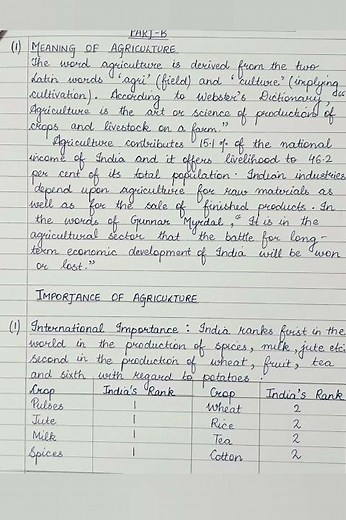 PART-B
(1) MEANING OF AGRICULTURE
The word agriculture is derived from the two
Latin words 'agri' (field) and 'culture' (implying
cultivation). According to Webster's Dictionary, "
Agriculture is the art or science of production of
crops and livestock on a farm."
Agriculture contributes 15.1 % of the national
income of India and it offers livelihood to 46.2
per cent of its total population. Indian industries
depend upon agriculture for raw materials as
well as for the sale of finished products. In
the words of Gunnar Myrdal, "It is in the
agricultural sector that the battle for long-
term economic development of India will be won
or lost."
IMPORTANCE OF AGRICULTURE
(1) International Importance : India ranks first in the
world in the production of spices, milk, jute etc;
second in the production of wheat, fruit, tea
and sixth with regard to potatoes.
Crop India's Rank Crop India's Rank
Pulses 1 Wheat 2
Jute 1 Rice 2
Milk 1 Tea 2
Spices 1 Cotton 2